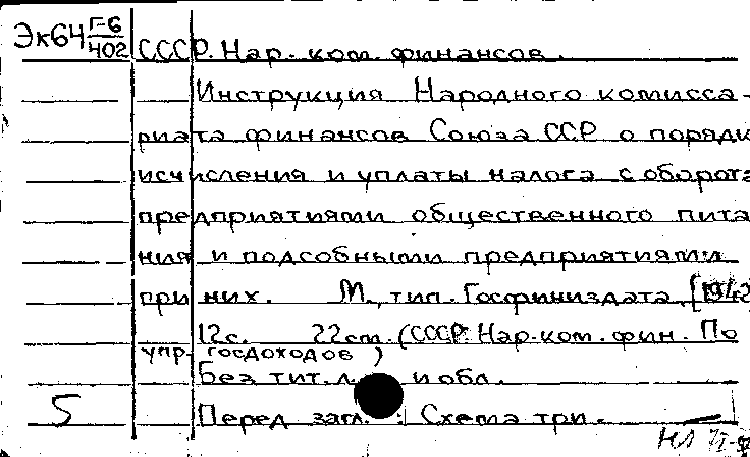 Эк64 Г-6
402
СССР. Нар. ком. финансов.
Инструкция Народного комисса-
риата финансов Союза ССР о поряд
исчисления и уплаты налога с оборота
предприятиями общественного пита
ния и подсобными предприятиями
при них. М., тип. Госфиниздата, [1942
12с. 22см. (СССР. Нар.ком.фин. По
упр. госдоходов)
Без тит. л. и обл.
5 Перед загл.: Схема три.